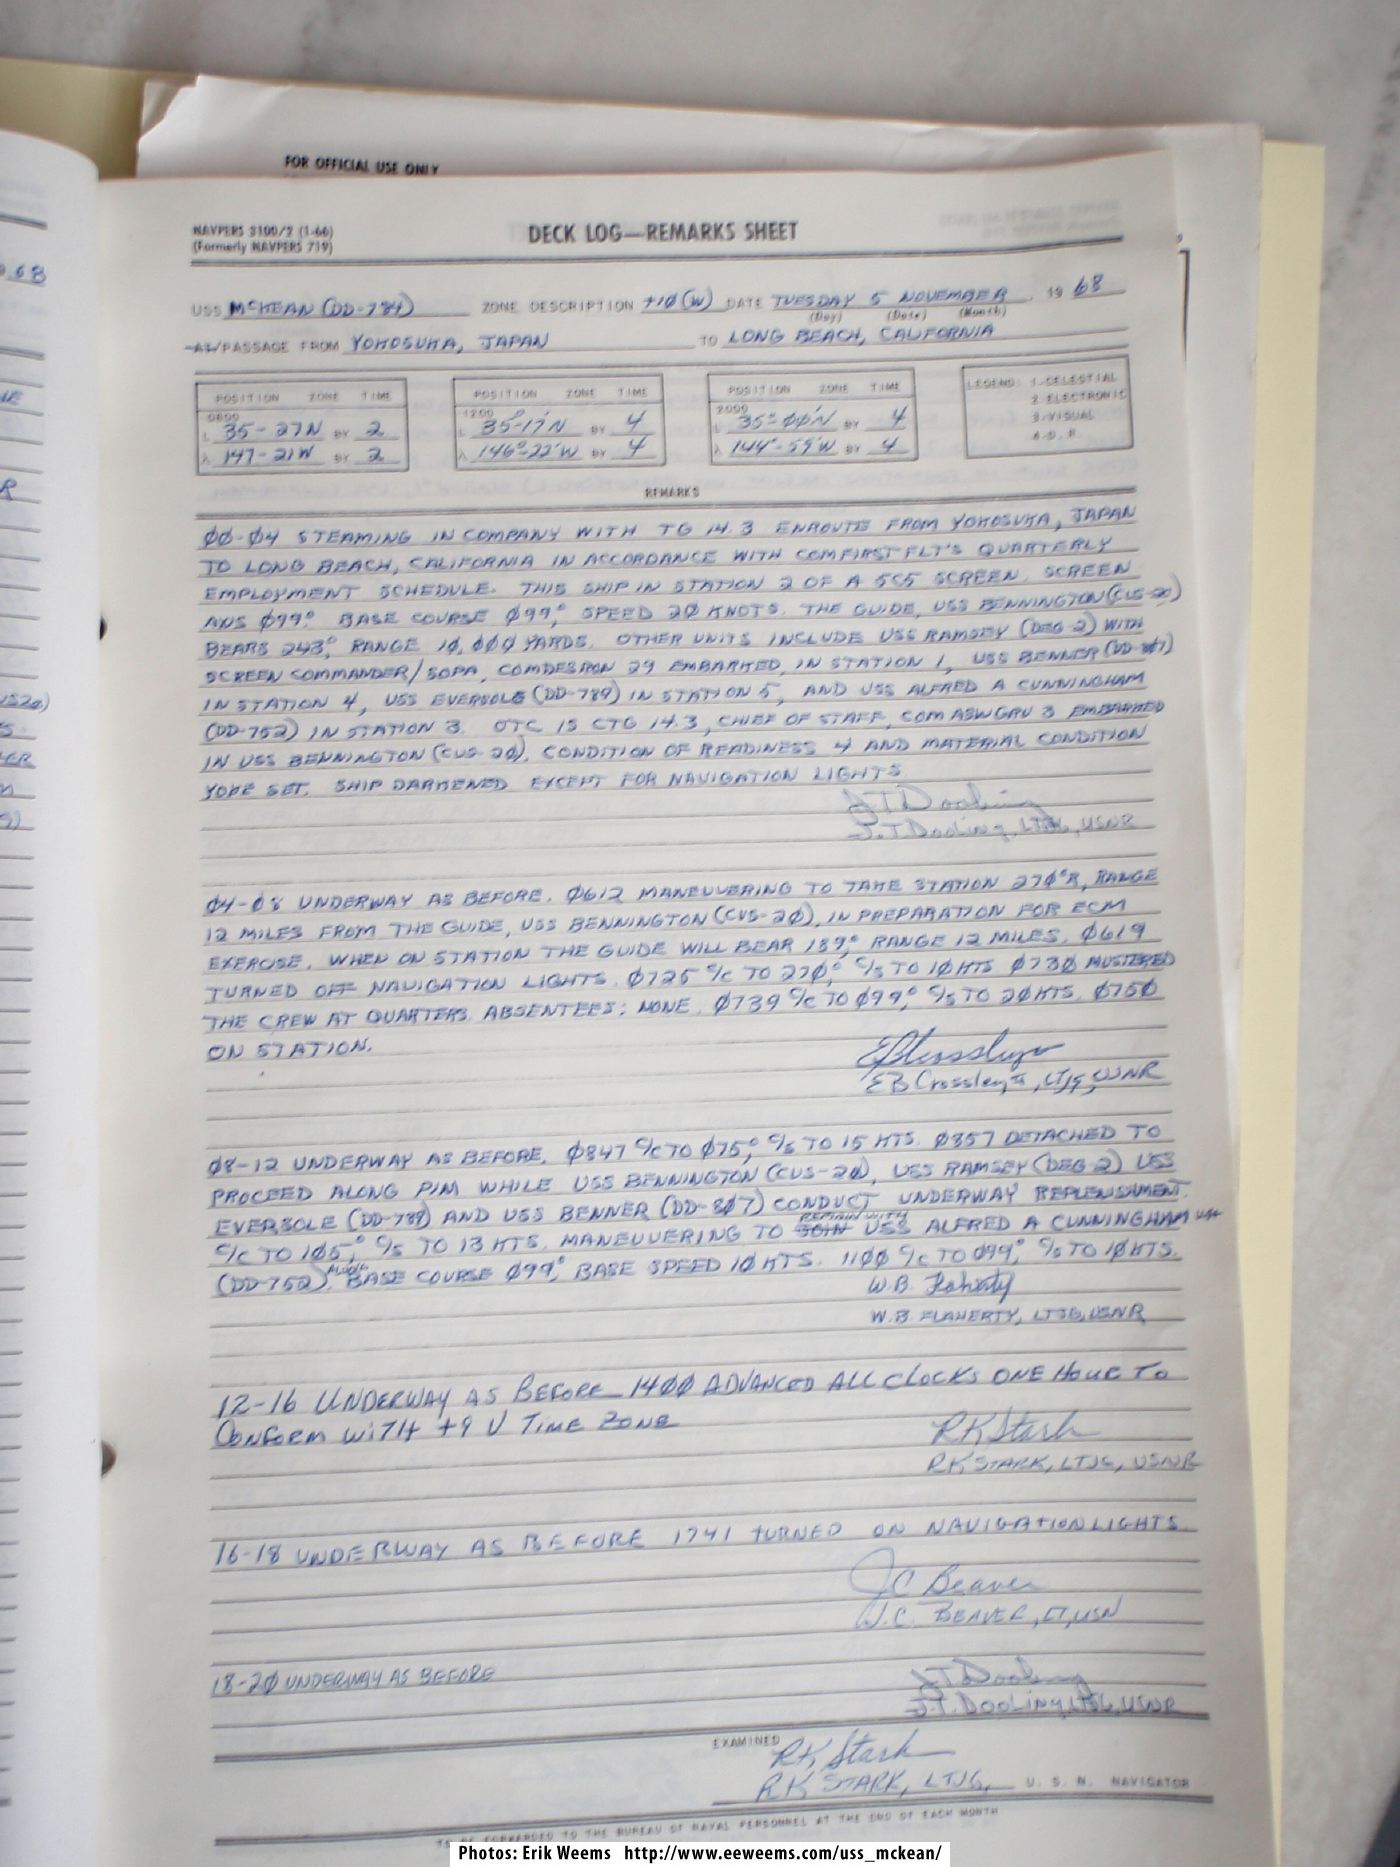 FOR OFFICIAL USE ONLY
NAVPERS 3100/2 (1-66)
(Formerly NAVPERS 719)
DECK LOG—REMARKS SHEET
USS McKEAN (DD-784) ZONE DESCRIPTION +10(W) DATE TUESDAY 5 NOVEMBER, 19 68
(Day) (Date) (Month)
AT/PASSAGE FROM YOKOSUKA, JAPAN TO LONG BEACH, CALIFORNIA
POSITION ZONE TIME
0800
L 35-27N BY 2
λ 147-21W BY 2
POSITION ZONE TIME
1200
L 35°-17'N BY 4
λ 146°-22'W BY 4
POSITION ZONE TIME
2000
L 35°-ØØ'N BY 4
λ 144°-59'W BY 4
LEGEND: 1-CELESTIAL
2-ELECTRONIC
3-VISUAL
4-D.R.
REMARKS
ØØ-Ø4 STEAMING IN COMPANY WITH TG 14.3 ENROUTE FROM YOKOSUKA, JAPAN
TO LONG BEACH, CALIFORNIA IN ACCORDANCE WITH COMFIRSTFLT'S QUARTERLY
EMPLOYMENT SCHEDULE. THIS SHIP IN STATION 2 OF A 5C5 SCREEN. SCREEN
AXIS Ø99°. BASE COURSE Ø99°, SPEED 2Ø KNOTS. THE GUIDE, USS BENNINGTON (CVS-2Ø)
BEARS 243°, RANGE 1Ø,ØØØ YARDS. OTHER UNITS INCLUDE USS RAMSEY (DEG-2) WITH
SCREEN COMMANDER/SOPA, COMDESRON 29 EMBARKED, IN STATION 1, USS BENNER (DD-8Ø7)
IN STATION 4, USS EVERSOLE (DD-789) IN STATION 5, AND USS ALFRED A CUNNINGHAM
(DD-752) IN STATION 3. OTC IS CTG 14.3, CHIEF OF STAFF, COMASWGRU 3 EMBARKED
IN USS BENNINGTON (CVS-2Ø). CONDITION OF READINESS 4 AND MATERIAL CONDITION
YOKE SET. SHIP DARKENED EXCEPT FOR NAVIGATION LIGHTS
J.T. Dooling
J.T. Dooling, LTJG, USNR
Ø4-Ø8 UNDERWAY AS BEFORE. Ø612 MANEUVERING TO TAKE STATION 27Ø°R, RANGE
12 MILES FROM THE GUIDE, USS BENNINGTON (CVS-2Ø), IN PREPARATION FOR ECM
EXERCISE. WHEN ON STATION THE GUIDE WILL BEAR 189°, RANGE 12 MILES. Ø619
TURNED OFF NAVIGATION LIGHTS. Ø725 C/C TO 27Ø°, C/S TO 1Ø KTS Ø73Ø MUSTERED
THE CREW AT QUARTERS. ABSENTEES: NONE. Ø739 C/C TO Ø99°, C/S TO 2Ø KTS. Ø75Ø
ON STATION.
EB Crossley
EB Crossley, II, LTJG, USNR
Ø8-12 UNDERWAY AS BEFORE. Ø847 C/C TO Ø75°, C/S TO 15 KTS. Ø857 DETACHED TO
PROCEED ALONG PIM WHILE USS BENNINGTON (CVS-2Ø), USS RAMSEY (DEG-2) USS
EVERSOLE (DD-789) AND USS BENNER (DD-8Ø7) CONDUCT UNDERWAY REPLENISHMENT.
REMAIN WITH
C/C TO 1Ø5°, C/S TO 13 KTS. MANEUVERING TO JOIN USS ALFRED A CUNNINGHAM
(DD-752). BASE COURSE Ø99°, BASE SPEED 1Ø KTS. 11ØØ C/C TO Ø99°, C/S TO 1Ø KTS.
W.B. Flaherty
W.B. FLAHERTY, LTJG, USNR
12-16 UNDERWAY AS BEFORE 14ØØ ADVANCED ALL CLOCKS ONE HOUR TO
CONFORM WITH +9 V TIME ZONE
RK Stark
RK STARK, LTJG, USNR
16-18 UNDERWAY AS BEFORE 1741 TURNED ON NAVIGATION LIGHTS.
JC Beaver
J.C. BEAVER, LT, USN
18-2Ø UNDERWAY AS BEFORE
J.T. Dooling
J.T. DOOLING, LTJG, USNR
EXAMINED
RK Stark
RK STARK, LTJG, U. S. N. NAVIGATOR
TO BE FORWARDED TO THE BUREAU OF NAVAL PERSONNEL AT THE END OF EACH MONTH
Photos: Erik Weems http://www.eeweems.com/uss_mckean/